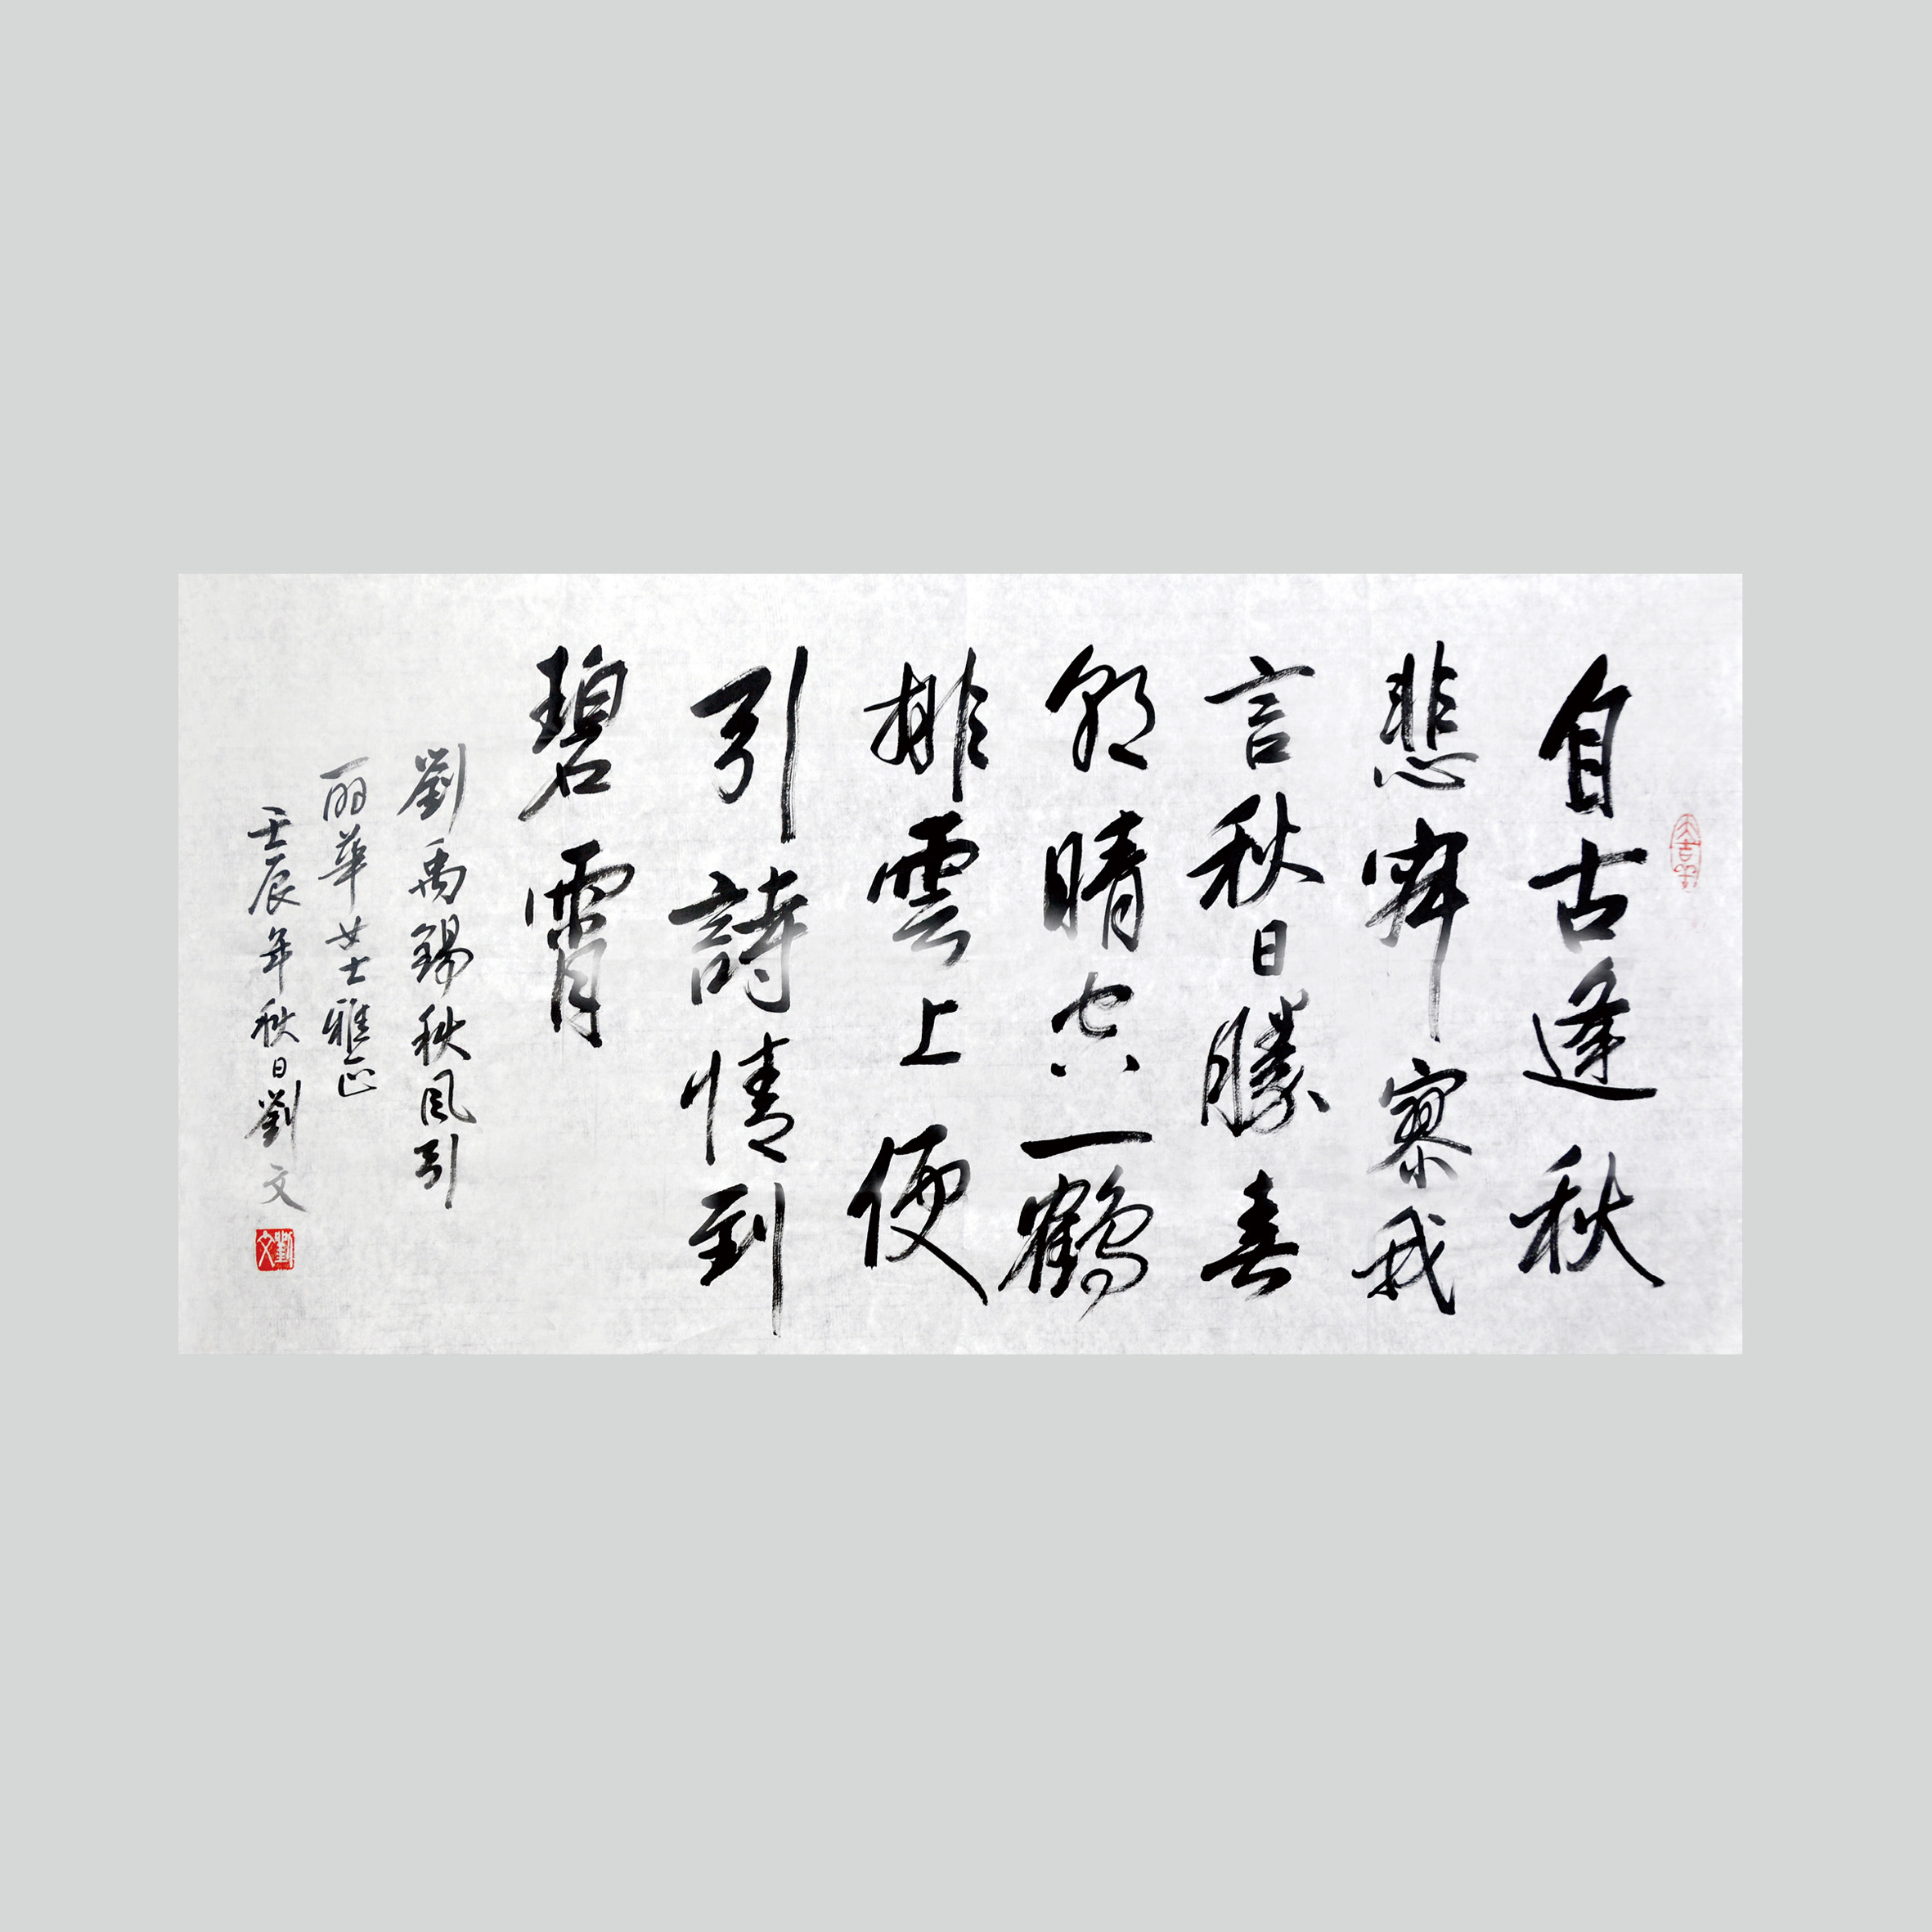 自古逢秋
悲寂寥我
言秋日勝春
朝晴空一鶴
排雲上便
引詩情到
碧霄
劉禹錫秋風引
丽華女士雅正
壬辰年秋日劉文
劉文